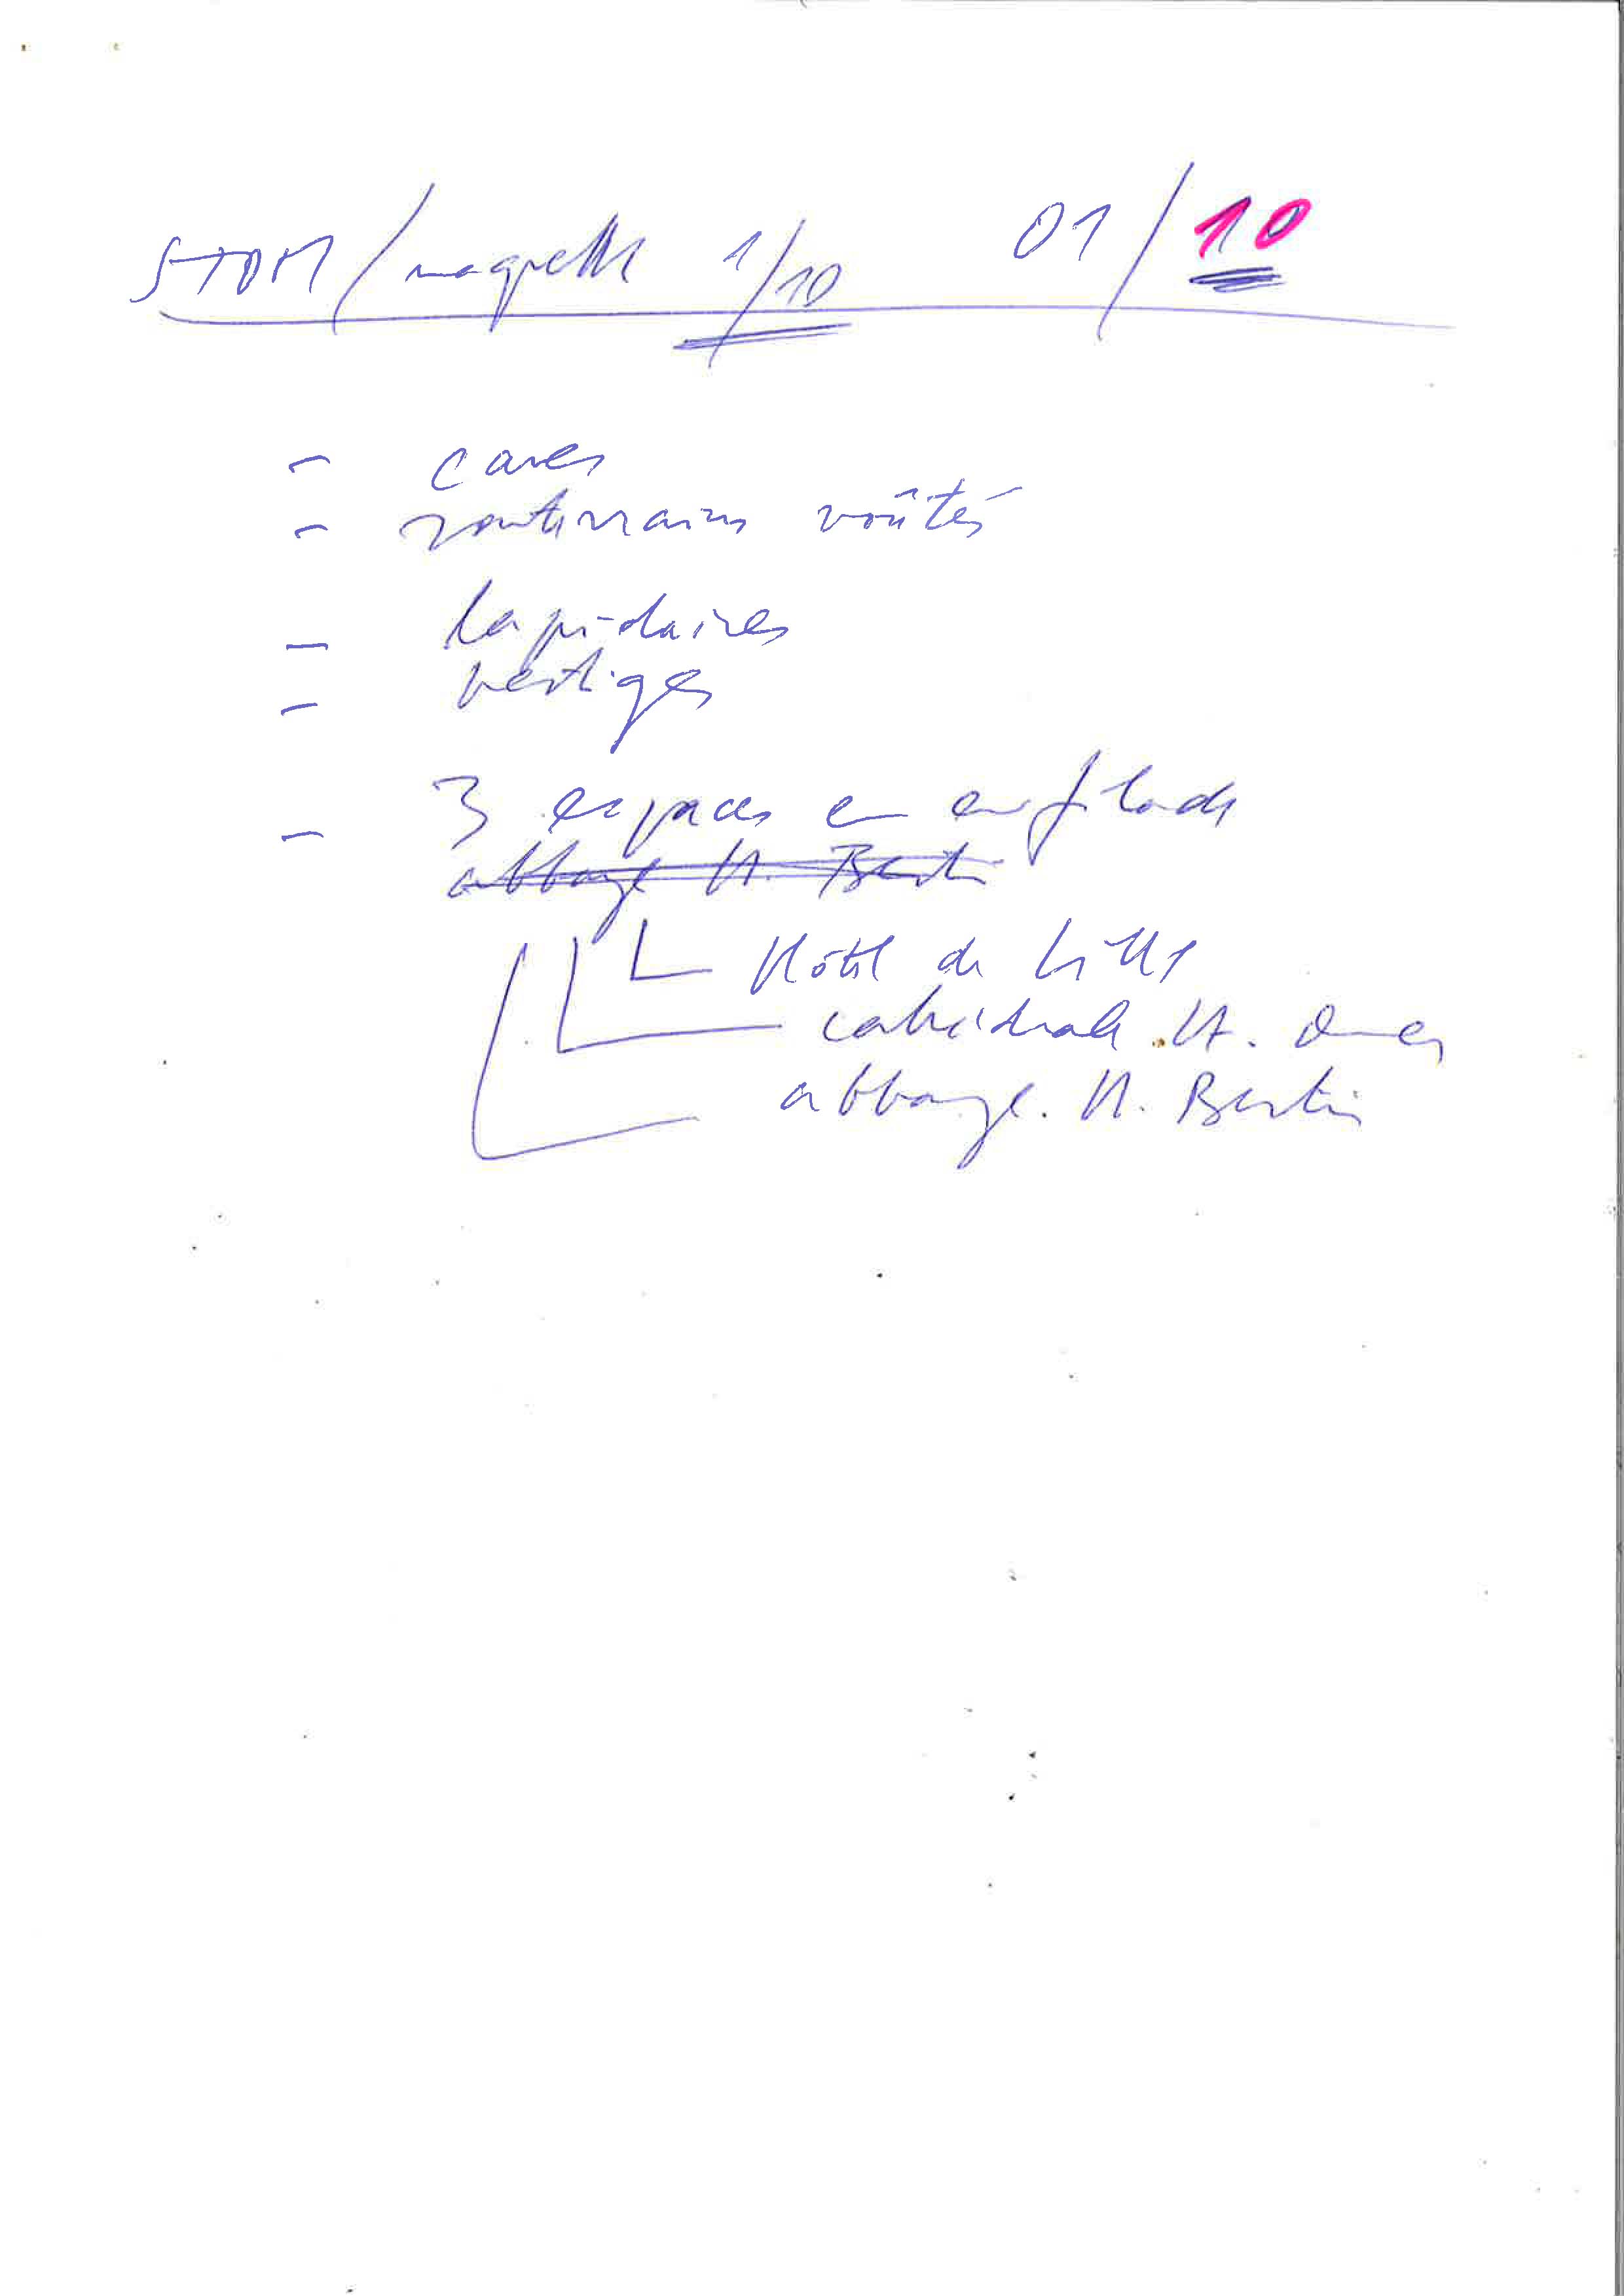 STOM / maquette 1/10 01/10
- caves
- souterrains voûtés
- lapidaires
- vestiges
- 3 espaces en enfilade
abbaye St. Bertin
Hôtel de Ville
cathédrale St. Omer
abbaye. St. Bertin